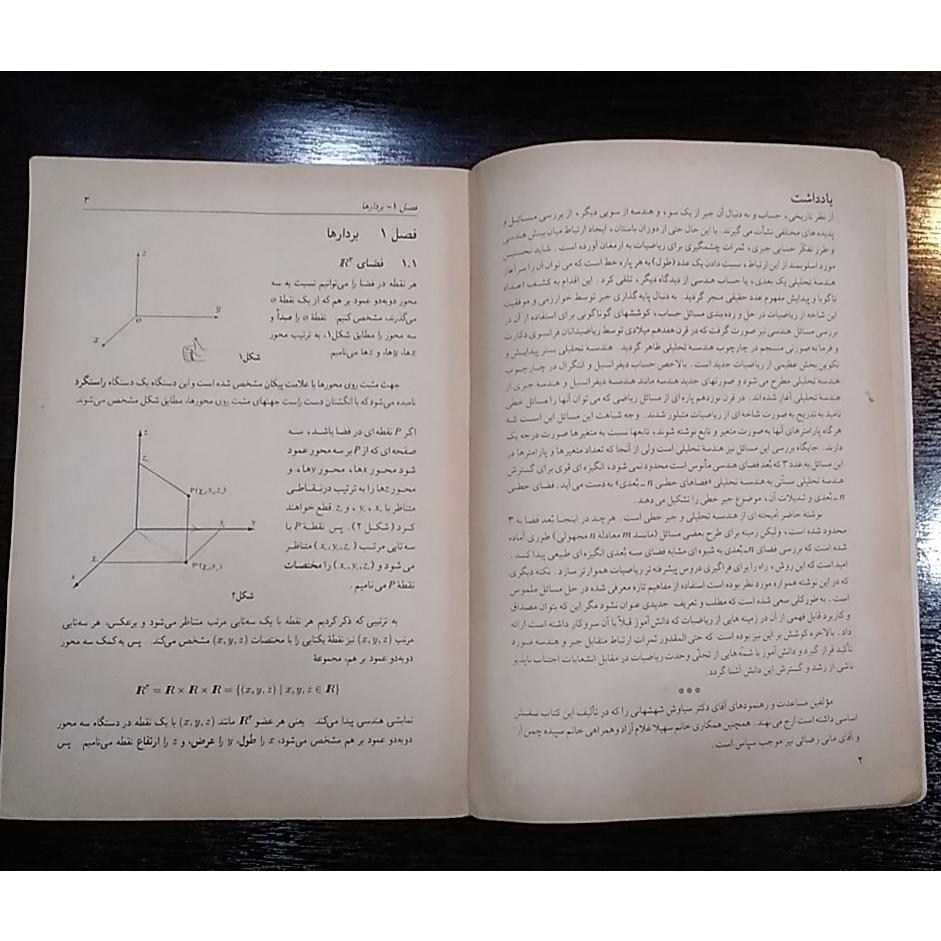 یادداشت
از نظر تاریخی، حساب و به دنبال آن جبر از یک سو، و هندسه از سویی دیگر، از بررسی مسائل و
پدیده های مختلفی نشأت می گیرند. با این حال حتی از دوران باستان، ایجاد ارتباط میان بینش هندسی
و طرز تفکر حسابی جبری، ثمرات چشمگیری برای ریاضیات به ارمغان آورده است. شاید نخستین
مورد اسلوبمند از این ارتباط، نسبت دادن یک عدد (طول) به هر پاره خط است که می توان آن را سرآغاز
هندسهٔ تحلیلی یک بعدی، یا حساب هندسی از دیدگاه دیگر، تلقی کرد. این اقدام به کشف اعداد
ناگویا و پیدایش مفهوم عدد حقیقی منجر گردید. به دنبال پایه گذاری جبر توسط خوارزمی و موفقیت
این شاخه از ریاضیات در حل و رده بندی مسائل حساب، کوششهای گوناگونی برای استفاده از آن در
بررسی مسائل هندسی نیز صورت گرفت که در قرن هفدهم میلادی توسط ریاضیدانان فرانسوی دکارت
و فرما به صورتی منسجم در چارچوب هندسهٔ تحلیلی ظاهر گردید. هندسهٔ تحلیلی بستر پیدایش و
تکوین بخش عظیمی از ریاضیات جدید است. بالاخص حساب دیفرانسیل و انتگرال در چارچوب
هندسهٔ تحلیلی مطرح می شود و صورتهای جدید هندسه مانند هندسهٔ دیفرانسیل و هندسهٔ جبری از
هندسهٔ تحلیلی آغاز شده اند. در قرن نوزدهم پاره ای از مسائل ریاضی که می توان آنها را مسائل خطی
نامید به تدریج به صورت شاخه ای از ریاضیات متبلور شدند. وجه شباهت این مسائل این است که
هر گاه پارامترهای آنها به صورت متغیر و تابع نوشته شوند، تابعها نسبت به متغیرها صورت درجه یک
دارند. جایگاه بررسی این مسائل نیز هندسهٔ تحلیلی است ولی از آنجا که تعداد متغیرها و پارامترها در
این مسائل به عدد ۳ که بُعد فضای هندسی مأنوس است محدود نمی شود، انگیزه ای قوی برای گسترش
هندسهٔ تحلیلی سنّتی به هندسهٔ تحلیلی «فضاهای خطی n ـ بُعدی» به دست می آید. فضای خطی
n ـ بُعدی و تبدیلات آن، موضوع جبر خطی را تشکیل می دهند.
نوشته حاضر آمیخته ای از هندسهٔ تحلیلی و جبر خطی است. هر چند در اینجا بُعد فضا به ۳
محدود شده است، ولیکن زمینه برای طرح بعضی مسائل (مانند m معادلهٔ n مجهولی) طوری آماده
شده است که بررسی فضای n ـ بُعدی به شیوه ای مشابه فضای سه بُعدی انگیزه ای طبیعی پیدا کند.
امید است که این روش، راه را برای فراگیری دروس پیشرفته تر ریاضیات هموارتر سازد. نکته دیگری
که در این نوشته همواره مورد نظر بوده است استفاده از مفاهیم تازه معرفی شده در حل مسائل ملموس
است. به طور کلی سعی شده است که مطلب و تعریف جدیدی عنوان نشود مگر این که بتوان مصداق
و کاربرد قابل فهمی از آن در زمینه هایی از ریاضیات که دانش آموز قبلاً با آن سر و کار داشته است ارائه
داد. بالاخره کوشش بر این نیز بوده است که حتی المقدور ثمرات ارتباط متقابل جبر و هندسه مورد
تأکید قرار گیرد و دانش آموز با شمّه هایی از تجلّی وحدت ریاضیات در مقابل انشعابات اجتناب ناپذیر
ناشی از رشد و گسترش این دانش آشنا گردد.
***
مؤلفین مساعدت و رهنمودهای آقای دکتر سیاوش شهشهانی را که در تألیف این کتاب نقش
اساسی داشته است ارج می نهند. همچنین همکاری خانم سهیلا غلام آزاد و همراهی خانم سپیده چمن آرا
و آقای مانی رضائی نیز موجب سپاس است.
۲
فصل ۱- بردارها
۳
فصل ۱ بردارها
۱.۱ فضای R۳
هر نقطه در فضا را می‌توانیم نسبت به سه
محور دوبه‌دو عمود بر هم که از یک نقطهٔ o
می‌گذرند، مشخص کنیم. نقطهٔ o را مبدأ و
سه محور را مطابق شکل۱، به ترتیب محور
xها، yها، و zها می‌نامیم.
z
y
o
x
شکل۱
جهت مثبت روی محورها با علامت پیکان مشخص شده است و این دستگاه یک دستگاه راستگرد
نامیده می‌شود که با انگشتان دست راست جهتهای مثبت روی محورها، مطابق شکل مشخص می‌شوند.
اگر P نقطه ای در فضا باشد، سه
صفحه ای که از P بر سه محور عمود
شود محور xها، محور yها، و
محور zها را به ترتیب در نقاطی
متناظر با x₀، y₀، و z₀ قطع خواهند
کرد (شکل ۲). پس نقطهٔ P با
سه تایی مرتب (x₀,y₀,z₀) متناظر
می شود و (x₀,y₀,z₀) را مختصات
نقطهٔ P می نامیم.
z
z₀
P(x₀,y₀,z₀)
y₀
y
x₀
x
P'(x₀,y₀)
شکل۲
به ترتیبی که ذکر کردیم هر نقطه با یک سه‌تایی مرتب متناظر می‌شود و برعکس، هر سه‌تایی
مرتب (x,y,z) نیز نقطهٔ یکتایی را با مختصات (x,y,z) مشخص می‌کند. پس به کمک سه محور
دوبه‌دو عمود بر هم، مجموعهٔ
R۳ = R × R × R = {(x,y,z) | x,y,z ∈ R}
نمایشی هندسی پیدا می‌کند. یعنی هر عضو R۳ مانند (x,y,z) با یک نقطه در دستگاه سه محور
دوبه‌دو عمود بر هم مشخص می‌شود، x را طول، y را عرض، و z را ارتفاع نقطه می‌نامیم. پس